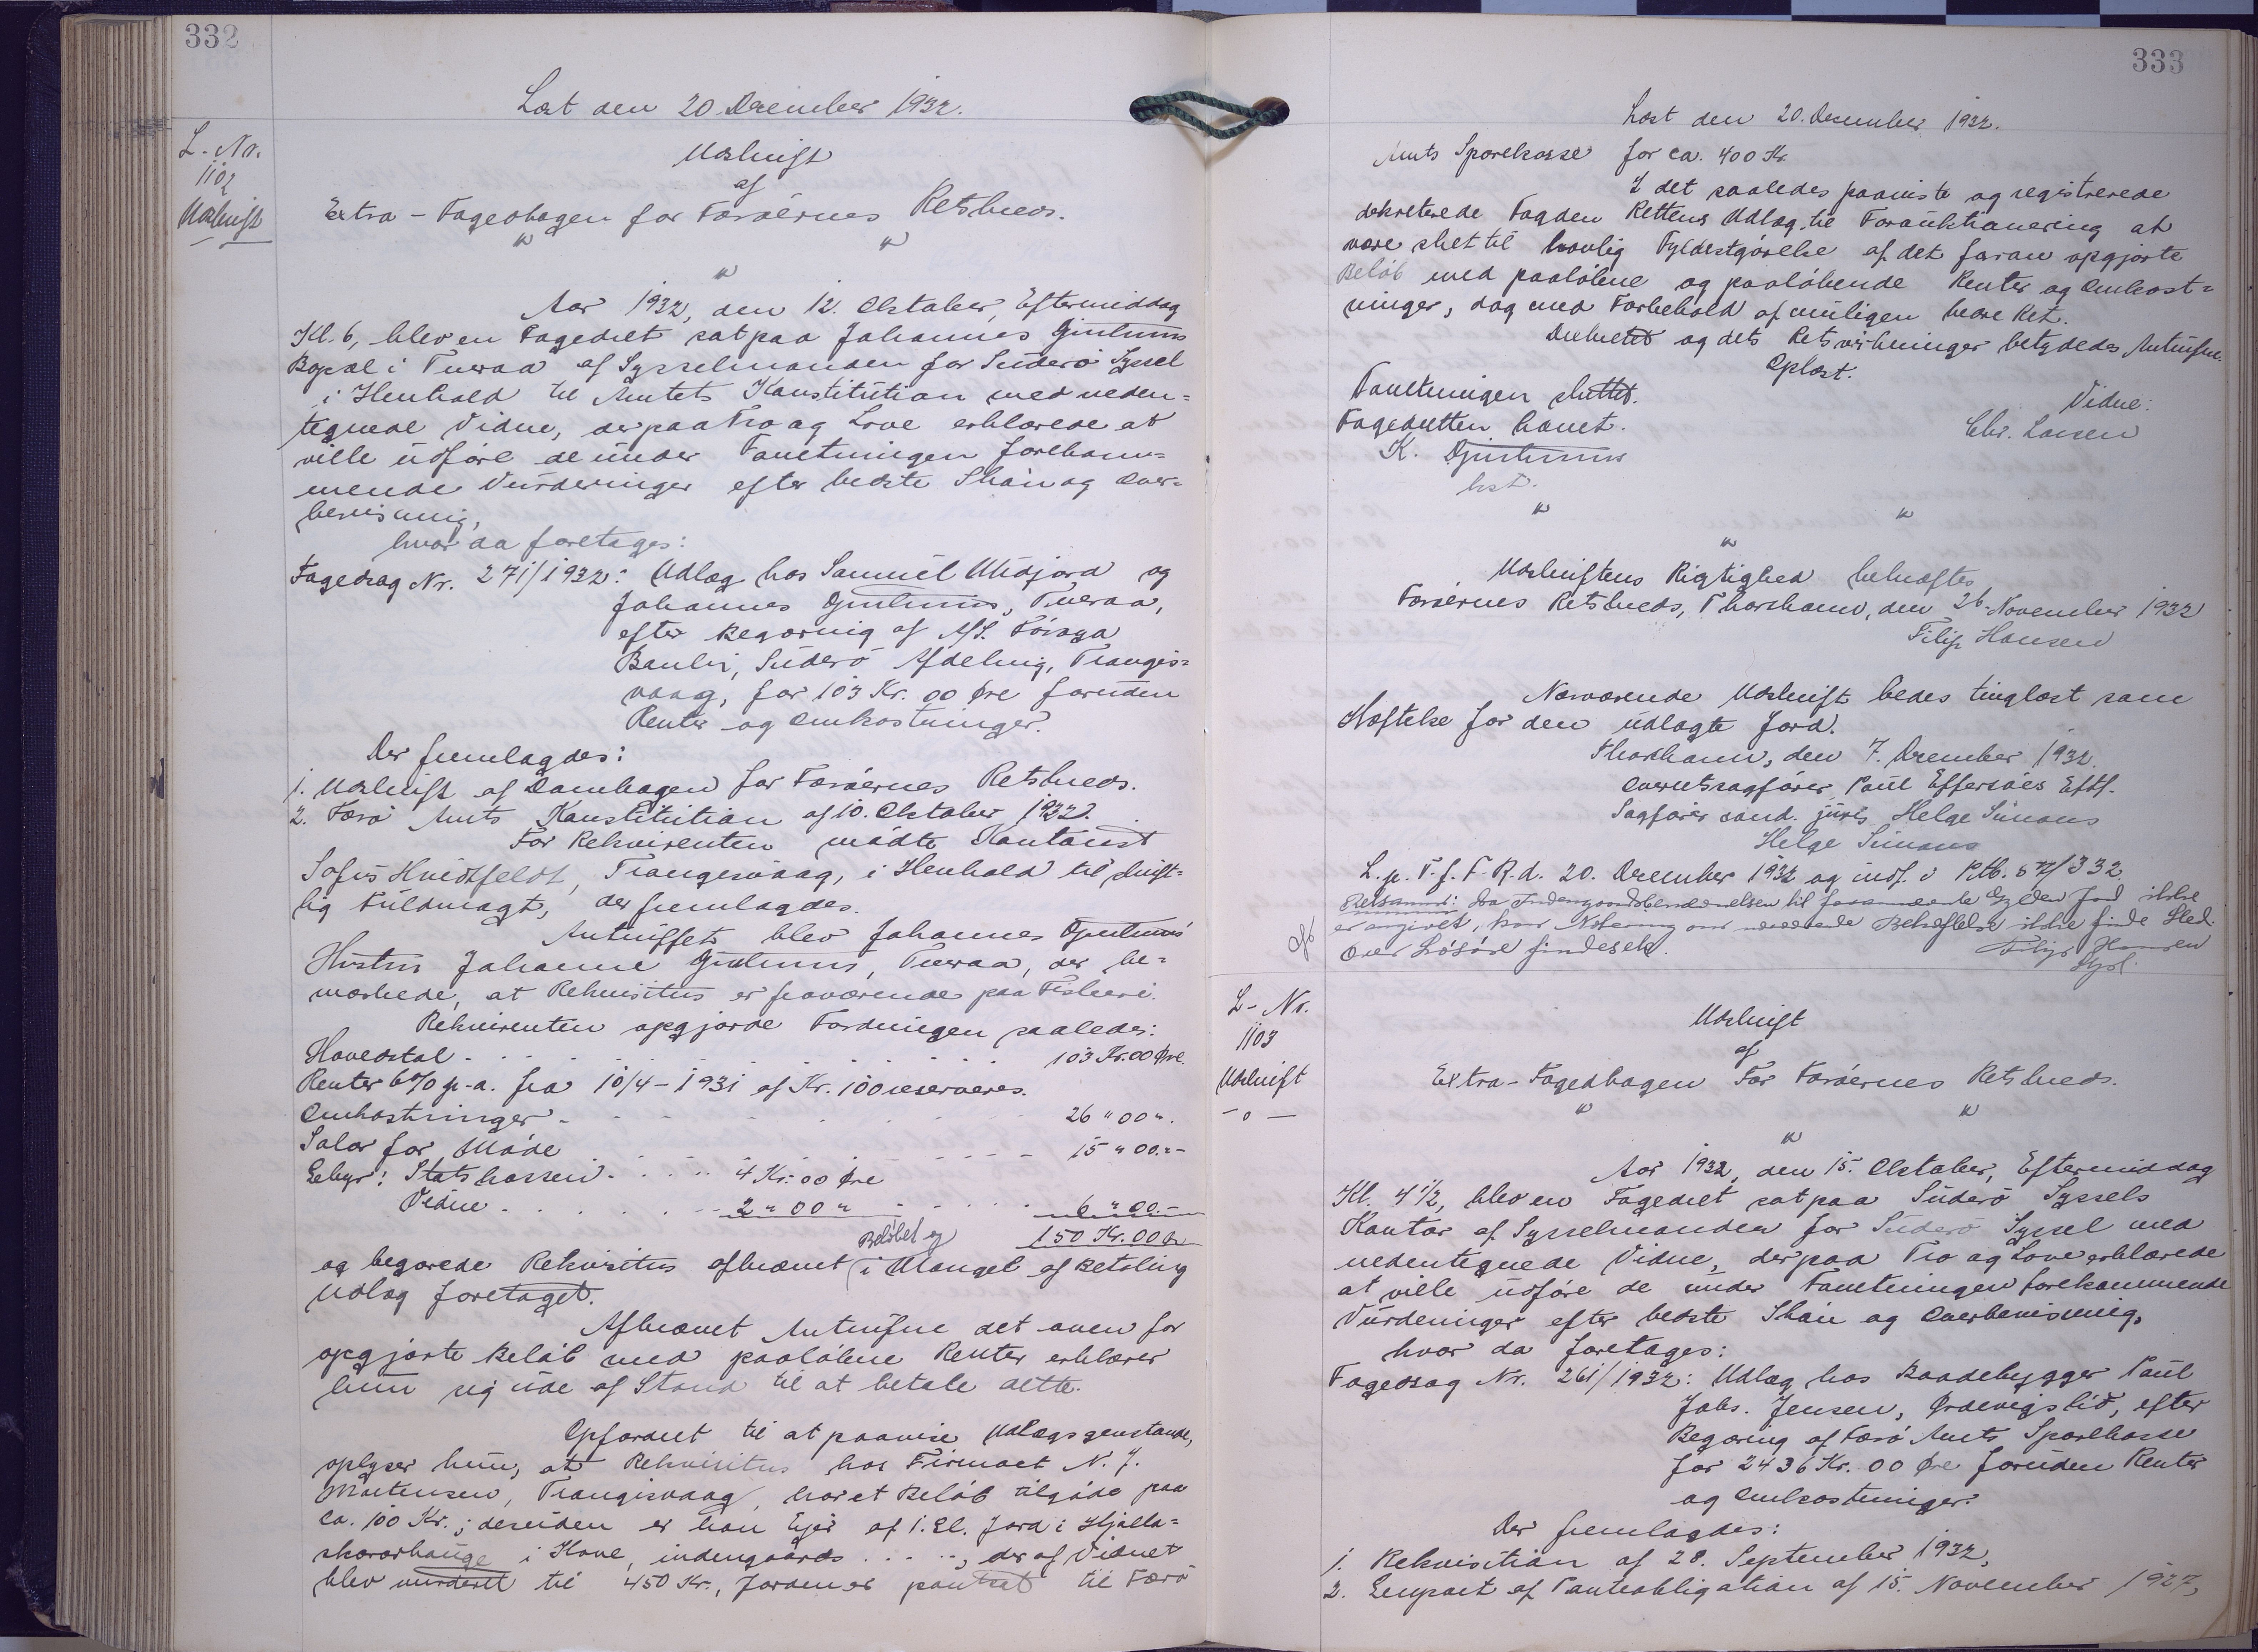 332
Læst den 20 December 1932.
L. Nr.
1102
Udskrift
Udskrift
af
Extra-Fogedbogen for Færøernes Retskreds.
Aar 1932, den 12. Oktober, Eftermiddag
Kl. 6, blev en Fogedret sat paa Johannes Guttesens
Bopæl i Tveraa af Sysselmanden for Suderø Syssel
i Henhold til Amtets Konstitution med neden=
tegnede Vidne, der paa Tro og Love erklærede at
ville udføre de under Forretningen forekom=
mende Vurderinger efter bedste Skøn og Over=
bevisning,
hvor da foretages:
Fogedsag Nr. 271/1932: Udlæg hos Samuel Midjord og
Johannes , Tveraa,
efter Begæring af A/S. Føroya
Banki, Suderø Afdeling, Trangis=
vaag, for 103 Kr. 00 Øre foruden
Renter og Omkostninger.
Der fremlagdes:
1. Udskrift af Dombogen for Færøernes Retskreds.
2. Færø Amts Konstitution af 10. Oktober 1932.
For Rekvirenten mødte Kontorist
Sofus Hvidtfeldt, Trangisvaag, i Henhold til skrift=
lig Fuldmagt, der fremlagdes.
Antruffet blev Johannes
Hustru Johanne , Tveraa, der be=
mærkede, at Rekvisitus er fraværende paa Fiskeri.
Rekvirenten opgjorde Fordringen saaledes:
Hovedstol . . . . . . . 103 Kr. 00 Øre
Renter 6% p.a. fra 10/4-1931 af Kr. 100 reserveres.
Omkostninger . . . . . 26 " 00 "
Salær for Møde . . . . . 15 " 00 "
Gebyr: Statskassen . . . . 4 Kr. 00 Øre
Vidne . . . . . 2 " 00 " . . . . 6 " 00 "
Beløbet og 150 Kr. 00 Øre
og begærede Rekvisitus afkrævet i Mangel af Betaling
Udlæg foretaget.
Afkrævet Antrufne det oven for
opgjorte Beløb med paaløbne Renter erklærer
hun sig ude af Stand til at betale dette.
Opfordret til at paavise Udlægsgenstande,
oplyser hun, at Rekvisitus hos Firmaet N. J.
Mortensen, Trangisvaag, har et Beløb tilgode paa
ca. 100 Kr.; desuden er han Ejer af 1. Gl. Jord i Hjalla=
i Hove, indengaards . . . . , der af Vidnet
blev vurderet til 450 Kr., Jorden er pantsat til Færø
333
Læst den 20. December 1932.
Amts Sparekasse for ca. 400 Kr.
I det saaledes paaviste og registrerede
dekreterede Fogden Rettens Udlæg til Forauktionering at
være sket til lovlig Fyldestgørelse af det foran opgjorte
Beløb med paaløbne og paaløbende Renter og Omkost=
ninger, dog med Forbehold af muligen bedre Ret.
Dekretet og dets Retsvirkninger betydedes Antrufne.
Oplæst.
Forretningen sluttet.
Fogedretten hævet.
Vidne:
Chr. Larsen
K.
kst.
Udskriftens Rigtighed bekræftes
Færøernes Retskreds, Thorshavn, den 26. November 1932
Filip Hansen
Nærværende Udskrift bedes tinglæst som
Hæftelse for den udlagte Jord.
Thorshavn, den 7. December 1932.
Overretssagfører Poul Effersøes Eftf.
Sagfører cand. juris Helge Simons
Helge Simons
L. p. T. f. F. R. d. 20. December 1932 og indf. i Ptb. 332.
Retsanm: Da Indengaardsbenævnelsen til forannævnte Gylden Jord ikke
er angivet, kan Notering om nærværende Behæftelse ikke finde Sted.
Over Løsøre findes ek.
Filip Hansen
L - Nr.
1103
Udskrift
- o -
Udskrift
af
Extra-Fogedbogen for Færøernes Retskreds.
Aar 1932, den 15. Oktober, Eftermiddag
Kl. 4 1/2, blev en Fogedret sat paa Suderø Syssels
Kontor af Sysselmanden for Suderø Syssel med
nedentegnede Vidne, der paa Tro og Love erklærede
at ville udføre de under Forretningen forekommende
Vurderinger efter bedste Skøn og Overbevisning,
hvor da foretages:
Fogedsag Nr. 261/1932: Udlæg hos Baadebygger Poul
Johs. Jensen, Ørdevigslid, efter
Begæring af Færø Amts Sparekasse
for 2436 Kr. 00 Øre foruden Renter
og Omkostninger.
Der fremlagdes:
1. Rekvisition af 28. September 1932,
2. Genpart af Panteobligation af 15. November 1927,